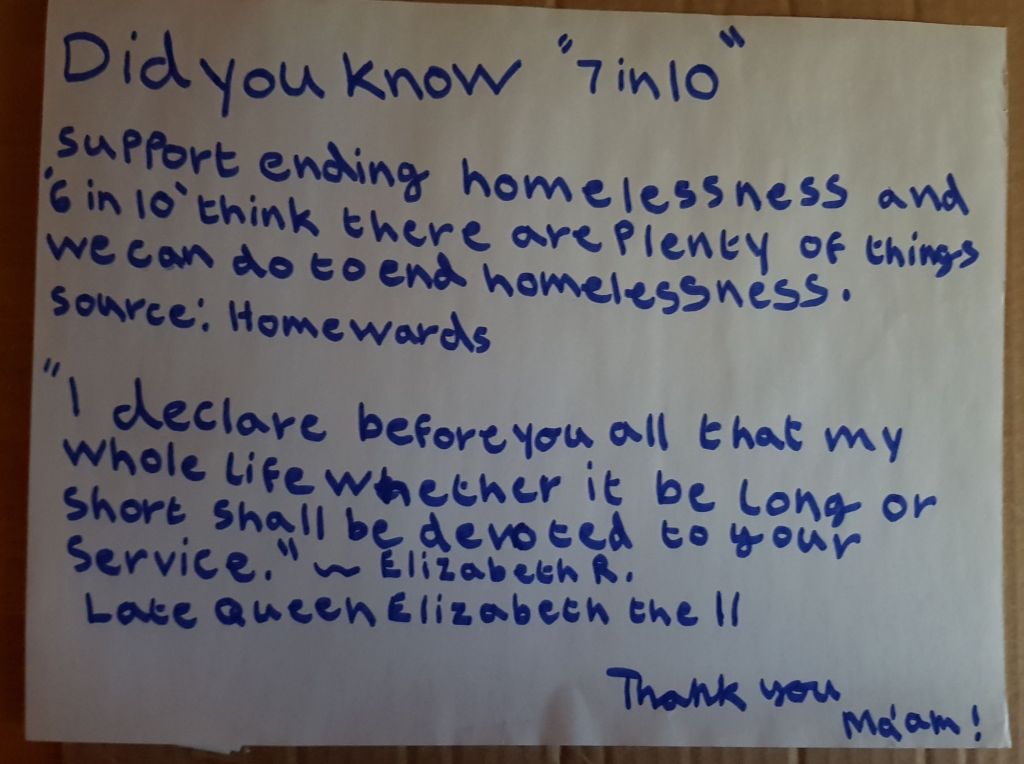 Did you know "7 in 10"
support ending homelessness and
'6 in 10' think there are plenty of things
we can do to end homelessness.
source: Homewards
"I declare before you all that my
whole life whether it be long or
short shall be devoted to your
service." ~ Elizabeth R.
Late Queen Elizabeth the II
Thank you
Ma'am!